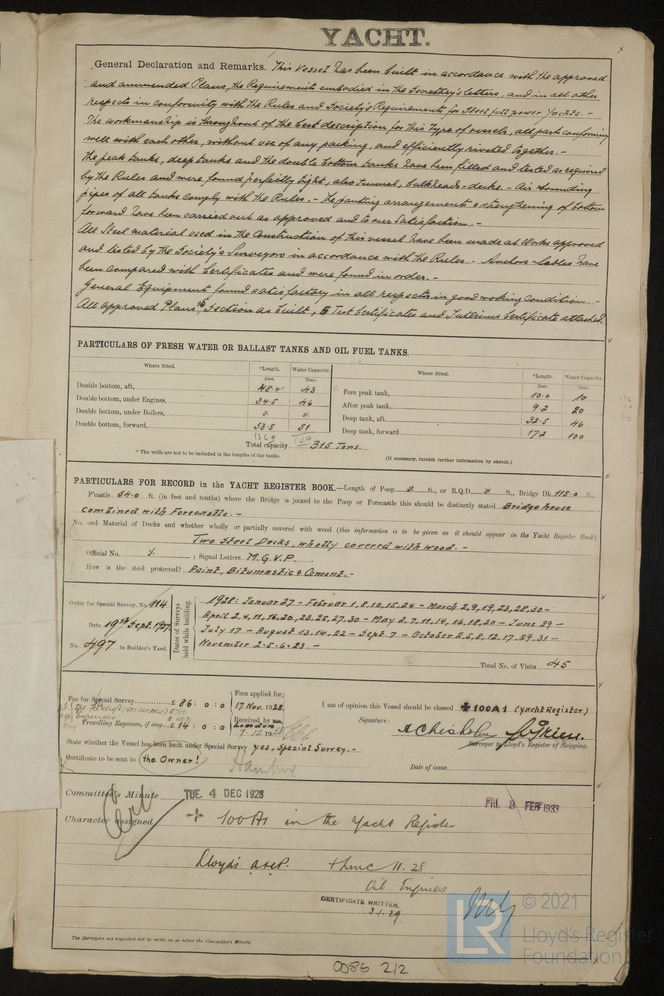 YACHT.
General Declaration and Remarks. This Vessel has been built in accordance with the approved
and ammended Plans, the Requirements embodied in the Secretary's letters, and in all other
respects in conformity with the Rules and Society's Requirements for Steel full power Yachts. -
The workmanship is throughout of the best description, for this type of vessels, all parts conforming
well with each other, without use of any packing, and efficiently riveted together. -
The peak tanks, deep tanks and the double bottom tanks have been filled and tested as required
by the Rules and were found perfectly tight, also Tunnel, bulkheads, decks. - Air & sounding
pipes of all tanks comply with the Rules. - The panting arrangements & strengthening of bottom
forward have been carried out as approved and to our satisfaction. -
All Steel material used in the Construction of this vessel have been made at Works approved
and tested by the Society's Surveyors in accordance with the Rules. - Anchors & Cables have
been compared with Certificates and were found in order. -
General Equipment found satisfactory in all respects & in good working condition. -
All approved Plans, Section as built, Test Certificates and Interims Certificate attached.
PARTICULARS OF FRESH WATER OR BALLAST TANKS AND OIL FUEL TANKS.
Where fitted. *Length. Water Capacity. Where fitted. *Length. Water Capacity.
Feet. Tons. Feet. Tons.
Double bottom, aft, 48.0 43 Fore peak tank, 10.0 10
Double bottom, under Engines, 34.5 46 After peak tank, 9.2 20
Double bottom, under Boilers, Deep tank, aft 32.5 46
Double bottom, forward, 53.5 51 Deep tank, forward 17.2 100
Total capacity 315 Tons.
* The wells are not to be included in the lengths of the tanks. (If necessary, furnish further information by sketch.)
PARTICULARS FOR RECORD in the YACHT REGISTER BOOK.—Length of Poop ft., or R.Q.D. ft., Bridge Dk 115.0 ft.,
F'castle 64.0 ft. (in feet and tenths) where the Bridge is joined to the Poop or Forecastle this should be distinctly stated Bridge house
combined with Forecastle. -
No. and Material of Decks and whether wholly or partially covered with wood (this information is to be given as it should appear in the Yacht Register Book)
Two Steel Decks, wholly covered with wood. -
Official No. ; Signal Letters M.G.V.P.
How is the steel protected? Paint, Bitumastic & Cement. -
Order for Special Survey, No. 114
Date 19th Sept. 1927
No. 497 in Builder's Yard.
Dates of Surveys held while building.
1928: Januar 27 - Februar 1, 8, 10, 15, 24 - March 2, 9, 19, 23, 28, 30 -
April 2, 4, 11, 16, 20, 23, 25, 27, 30 - May 2, 7, 11, 14, 16, 18, 30 - June 29 -
July 17 - August 13, 14, 22 - Sept. 7 - October 2, 5, 8, 12, 17, 29, 31 -
November 2. 5. 6. 23. -
Total No. of Visits 45
Fee for Special Survey £ 86 : 0 : 0 Fees applied for,
17 Nov. 1928
Travelling Expenses, if any £ 14 0 : 0 Received by me,
London
7.12.1928
I am of opinion this Vessel should be classed ✠ 100A1 (Yacht Register)
Signature: A Chisholm
Surveyor to Lloyd's Register of Shipping.
State whether the Vessel has been built under Special Survey yes, Special Survey. -
Certificate to be sent to the Owner! Hamburg Date of issue
Committee's Minute TUE. 4 DEC 1928 FRI. 3 FEB 1933
Character assigned ✠ 100A1 in the Yacht Register
Lloyd's A&CP. + LMC 11.28
Oil Engines
CERTIFICATE WRITTEN.
3.1.29
The Surveyors are requested not to write on or below the Committee's Minute.
0086 212
LR
© 2021
Lloyd's Register
Foundation